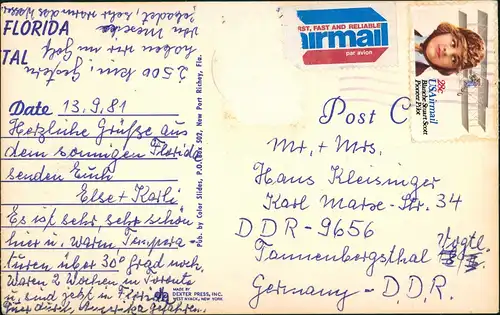 FLORIDA
TAL
Date 13.9.81
Herzliche Grüße aus
dem sonnigen Florida
senden Euch
Else + Karli
Es ist sehr, sehr schön
hier u. warm, Tempera-
turen über 30° Grad noch.
Waren 2 Wochen in Toronto
u. sind jetzt in Florida
Quer durch Amerika gefahren.
2500 km, Gestern
haben wir im Golf
von Mexiko
gebadet, sehr warm das Wasser
Pub. by Color Slides, P.O. Box 502, New Port Richey, Fla.
MADE BY
DEXTER PRESS, INC.
WEST NYACK, NEW YORK
RST, FAST AND RELIABLE
airmail
par avion
28c
USAirmail
Blanche Stuart Scott
Pioneer Pilot
Post C
Mr. + Mrs.
Hans Kleisinger
Karl Marx-Str. 34
DDR-9656
Tannenbergsthal Vogtl.
Germany - D.D.R.